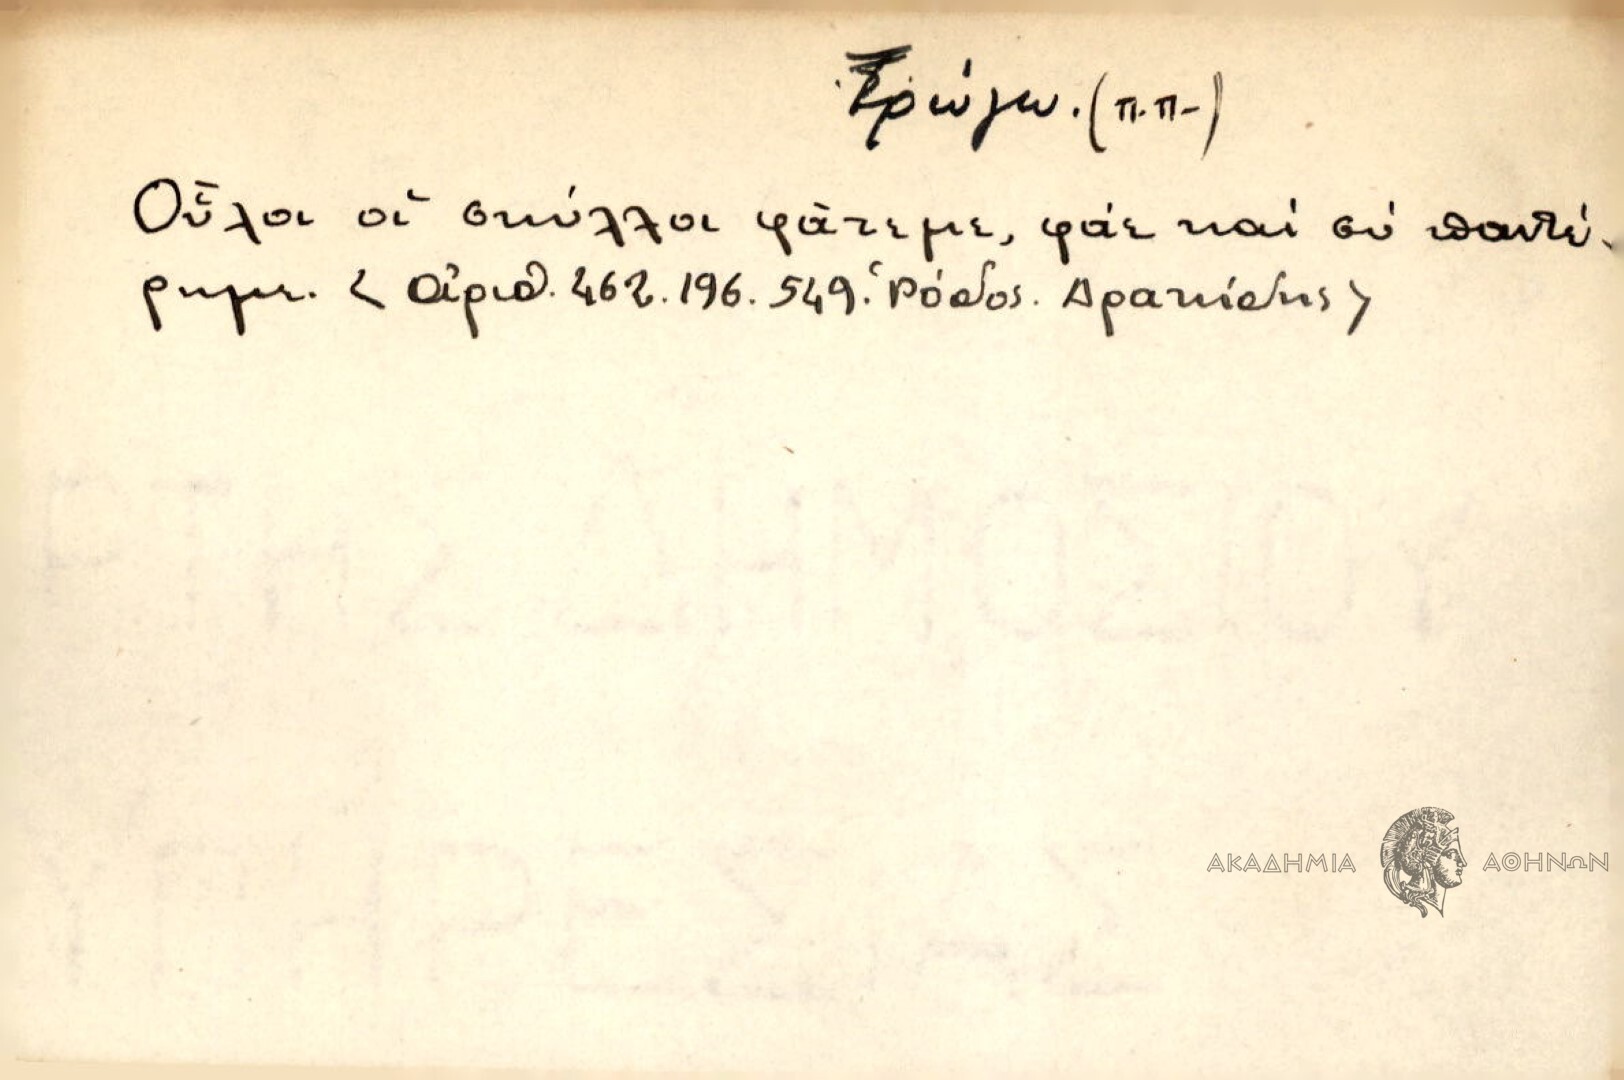 Τρώγω. (π.π-)
Οὖλοι οἱ σκύλλοι φᾶτεμε, φάε καί σύ παντέ-
ρημε. < Ἀριθ. 462. 196. 549. Ῥόδος. Δρακίδης >
ΑΚΑΔΗΜΙΑ ΑΘΗΝΩΝ